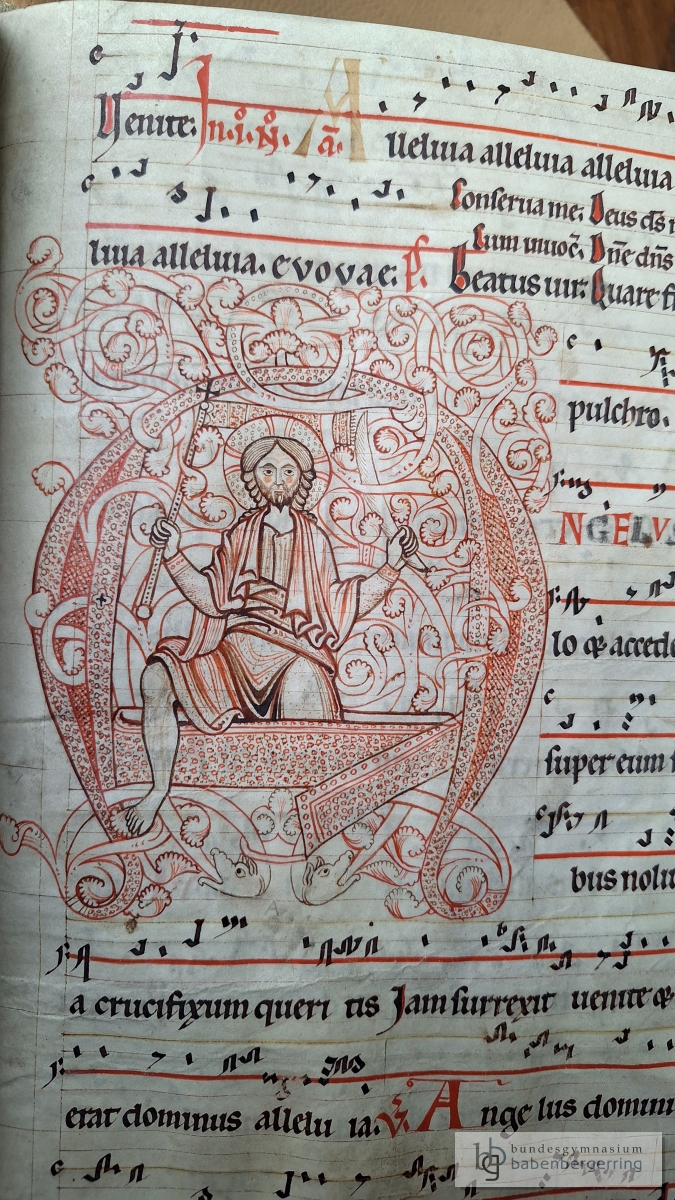 Venite: In.i.N. a. A lleluia alleluia alleluia
Conserua me; Deus ds
luia alleluia. evovae; Ps. Beatus uir; Quare
pulchro.
NGELVS
lo & accede
super eum
bus nolı
a crucifixum queri tis Jam surrexit uenite &
erat dominus allelu ia. V. A nge lus domini
bundesgymnasium
babenbergerring